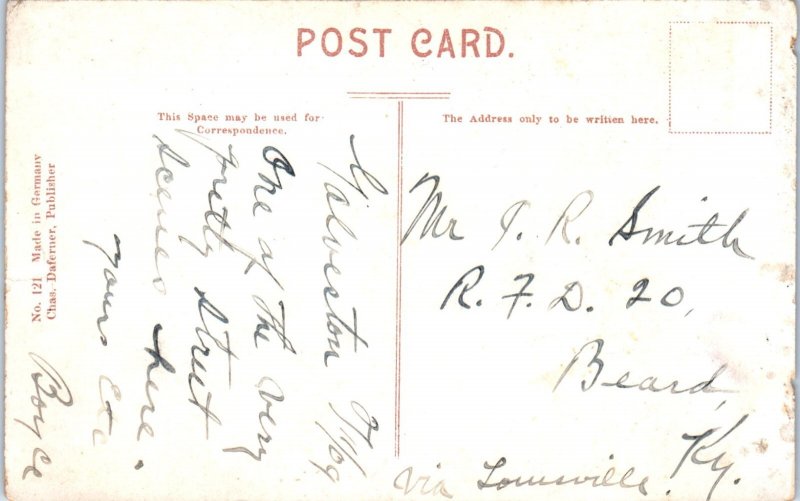 POST CARD.
This Space may be used for
Correspondence.
The Address only to be written here.
No. 121 Made in Germany
Chas. Daferner, Publisher
Galveston
One of the very
pretty street
scenes here.
yours Etc
Boyce
Mr J. R. Smith
R. F. D. 20,
Beard,
Ky.
via Louisville.